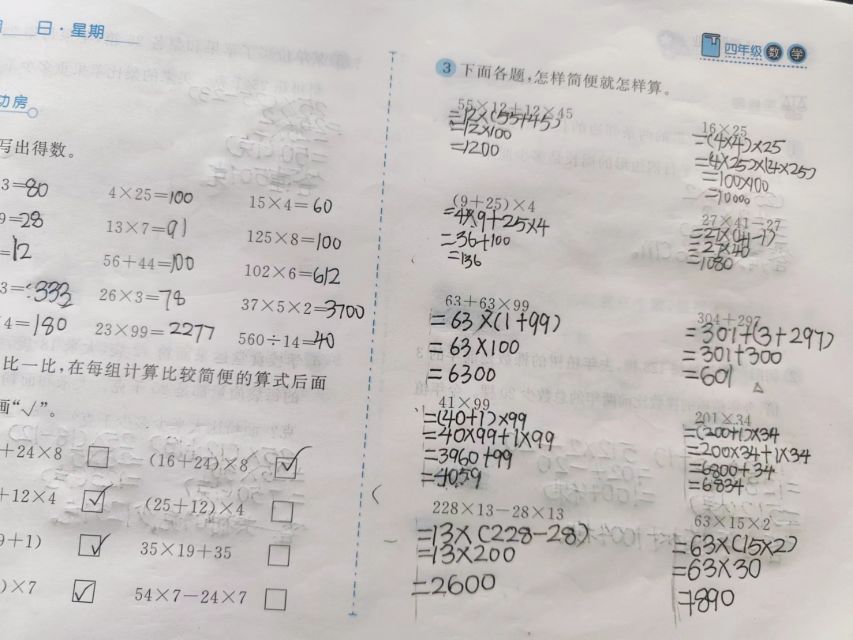 日·星期
功房
写出得数。
3=80
4×25=100
15×4=60
9=28
13×7=91
125×8=100
=12
56+44=100
102×6=612
3=333
26×3=78
37×5×2=3700
4=180
23×99=2277
560÷14=40
比一比,在每组计算比较简便的算式后面
画“√”。
+24×8 □
(16+24)×8 ☑
+12×4 ☑
(25+12)×4 □
9+1) ☑
35×19+35 □
)×7 ☑
54×7-24×7 □
四年级 数 学
3 下面各题,怎样简便就怎样算。
55×12+12×45
=12×(55+45)
=12×100
=1200
16×25
=(4×4)×25
=(4×25)×(4×25)
=100×100
=10000
(9+25)×4
=4×9+25×4
=36+100
=136
27×41-27
=27×(41-1)
=27×40
=1080
63+63×99
=63×(1+99)
=63×100
=6300
304+297
=301+(3+297)
=301+300
=601
41×99
=(40+1)×99
=40×99+1×99
=3960+99
=4059
201×34
=(200+1)×34
=200×34+1×34
=6800+34
=6834
228×13-28×13
=13×(228-28)
=13×200
=2600
63×15×2
=63×(15×2)
=63×30
=1890